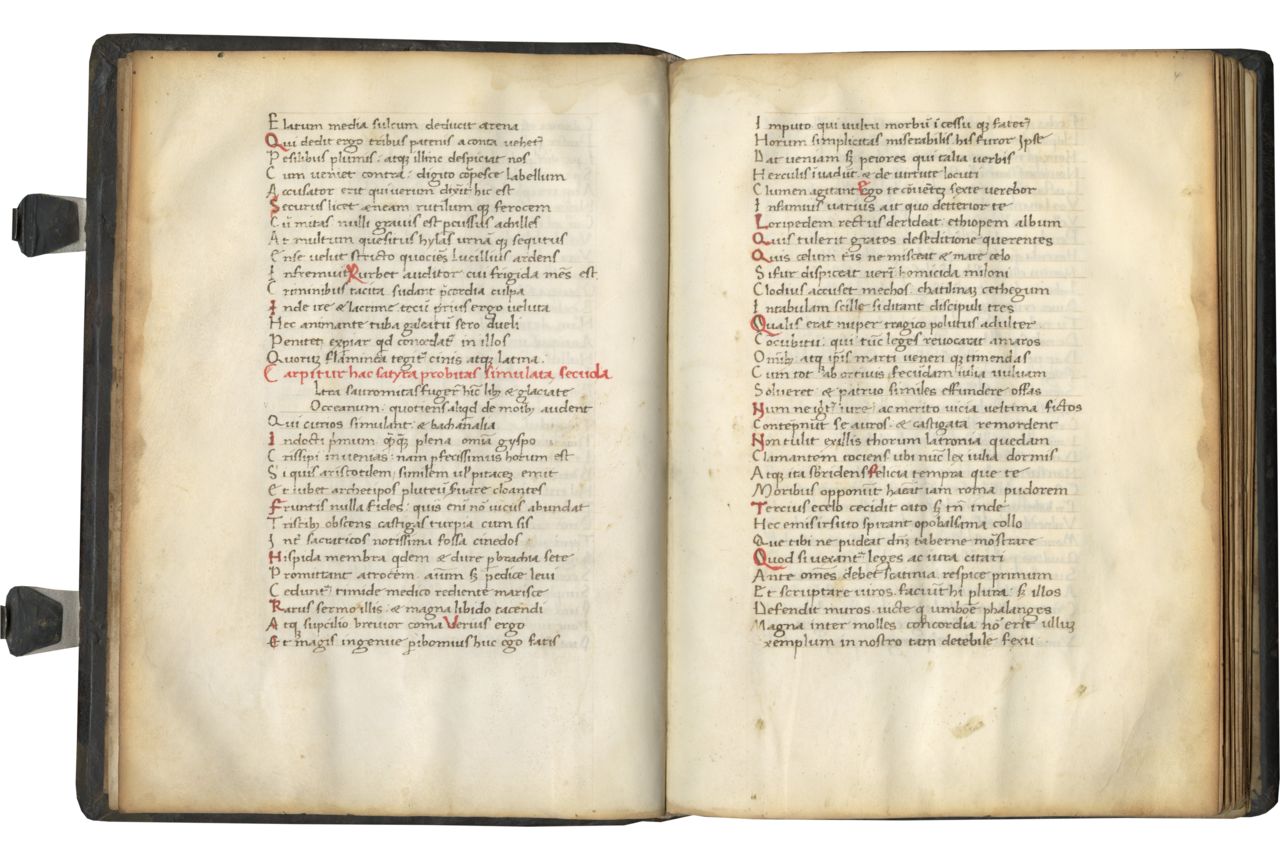 E latum media sulcum deducit arena
Q ui dedit ergo tribus patruis aconita vehet᷑
P esilibus plumis : atq; illinc despiciat nos
C um veniet contra : digito cōpesce labellum
A ccusator erit qui verum dixit hic est
S ecurus licet aeneam rutilum q; ferocem
C ū mitas nulli gravis est pcussus achilles
A t multum quesitus hylas urna q; sequutus
E nse velut stricto quociēs Lucillius ardens
I nfremuit Rurbet auditor cui frigida mēs est
C riminibus tacita sudant p̄cordia culpa
I nde ire & lacrime tecū prius ergo veluta
H ec animante tuba galeatū sero dueli
P enitet expiar qd concedat᷑ in illos
Q uorū flaminea tegit᷑ cinis atq; latina .
C arpitur hac satyra probitas simulata, secūda
Ltra sauromitas fuger᷑ hīc lib; & glaciale
Oceanum quotiens aliqd de morib; audent
Q ui curios simulant & bachanalia
I ndocti primum q̄q; plena omīa gypso
C rissipi invenias : nam pfectissimus horum est
S i quis aristotelem similem vl̓ pitacē emit
E t iubet archetipos pluteū fuare cleantes
F runtis nulla fides : quis enī nō vicus abundat
T ristib; obscens castigas turpia cum sis
I nt᷑ sacraticos notissima fossa cinedos
H ispida membra qdem & dure p brachia sete
P romittant atrocem aīum sȝ pedice levi
C edunt᷑ timide medico rediente marisce
R arus sermo illis & magna libido tacendi
A tq; supcilio brevior coma Verius ergo
E t magis ingenue pibomius huc ego fatis
I mputo qui vultu morbū ī cessu q; fatet᷑
H orum simplicitas miserabilis his furor ipse
D at veniam sȝ peiores qui talia verbis
H erculis ivadūt & de virtute locuti
C lumen agitant Ego te cōventē sexte verebor
I nfamius varius ait quo deterior te
L oripedem rectus derideat ethiopem album
Q uis tulerit gratos de seditione querentes
Q uis celum tr̄is ne misceat & mare celo
S i fur dispiceat verī homicida miloni
C lodius accuset mechos chatilina; cethegum
I n tabulam scille si ditant discipuli tres
Q ualis erat nuper tragico polutus adulter
C ocubitu : qui tūc leges revocarat amaros
O mīb; atq; ip̄is marti veneri q; timendas
C um tot ab ortivis fecūdam iulia vulvam
S olveret & patruo similes effundere offas
N um ne igit᷑ iure ac merito vicia ueltima fictos
C ontepnūt se auros & castigata remordent
N on tulit exillis thorum latronia quedam
C lamantem tociens ubi nūc lex iulia dormis
A tq; ita sbridens felicia tempra que te
M oribus opponūt habeāt iam roma pudorem
T ercius e celo cecidit cato sȝ tn̄ inde
H ec emis irsuto spirant opobalsima collo
Q ue tibi ne pudeat dn̄ȝ taberne mōstrare
Q uod si vexant᷑ leges ac iura citari
A nte omēs debet scatinia respice primum
E t scruptare viros faciūt hi plura sȝ illos
D efendit muros iūcte q; umbōe phalanges
M agna inter molles concordia nō erit ullū
xemplum in nostro tam detebile sexu